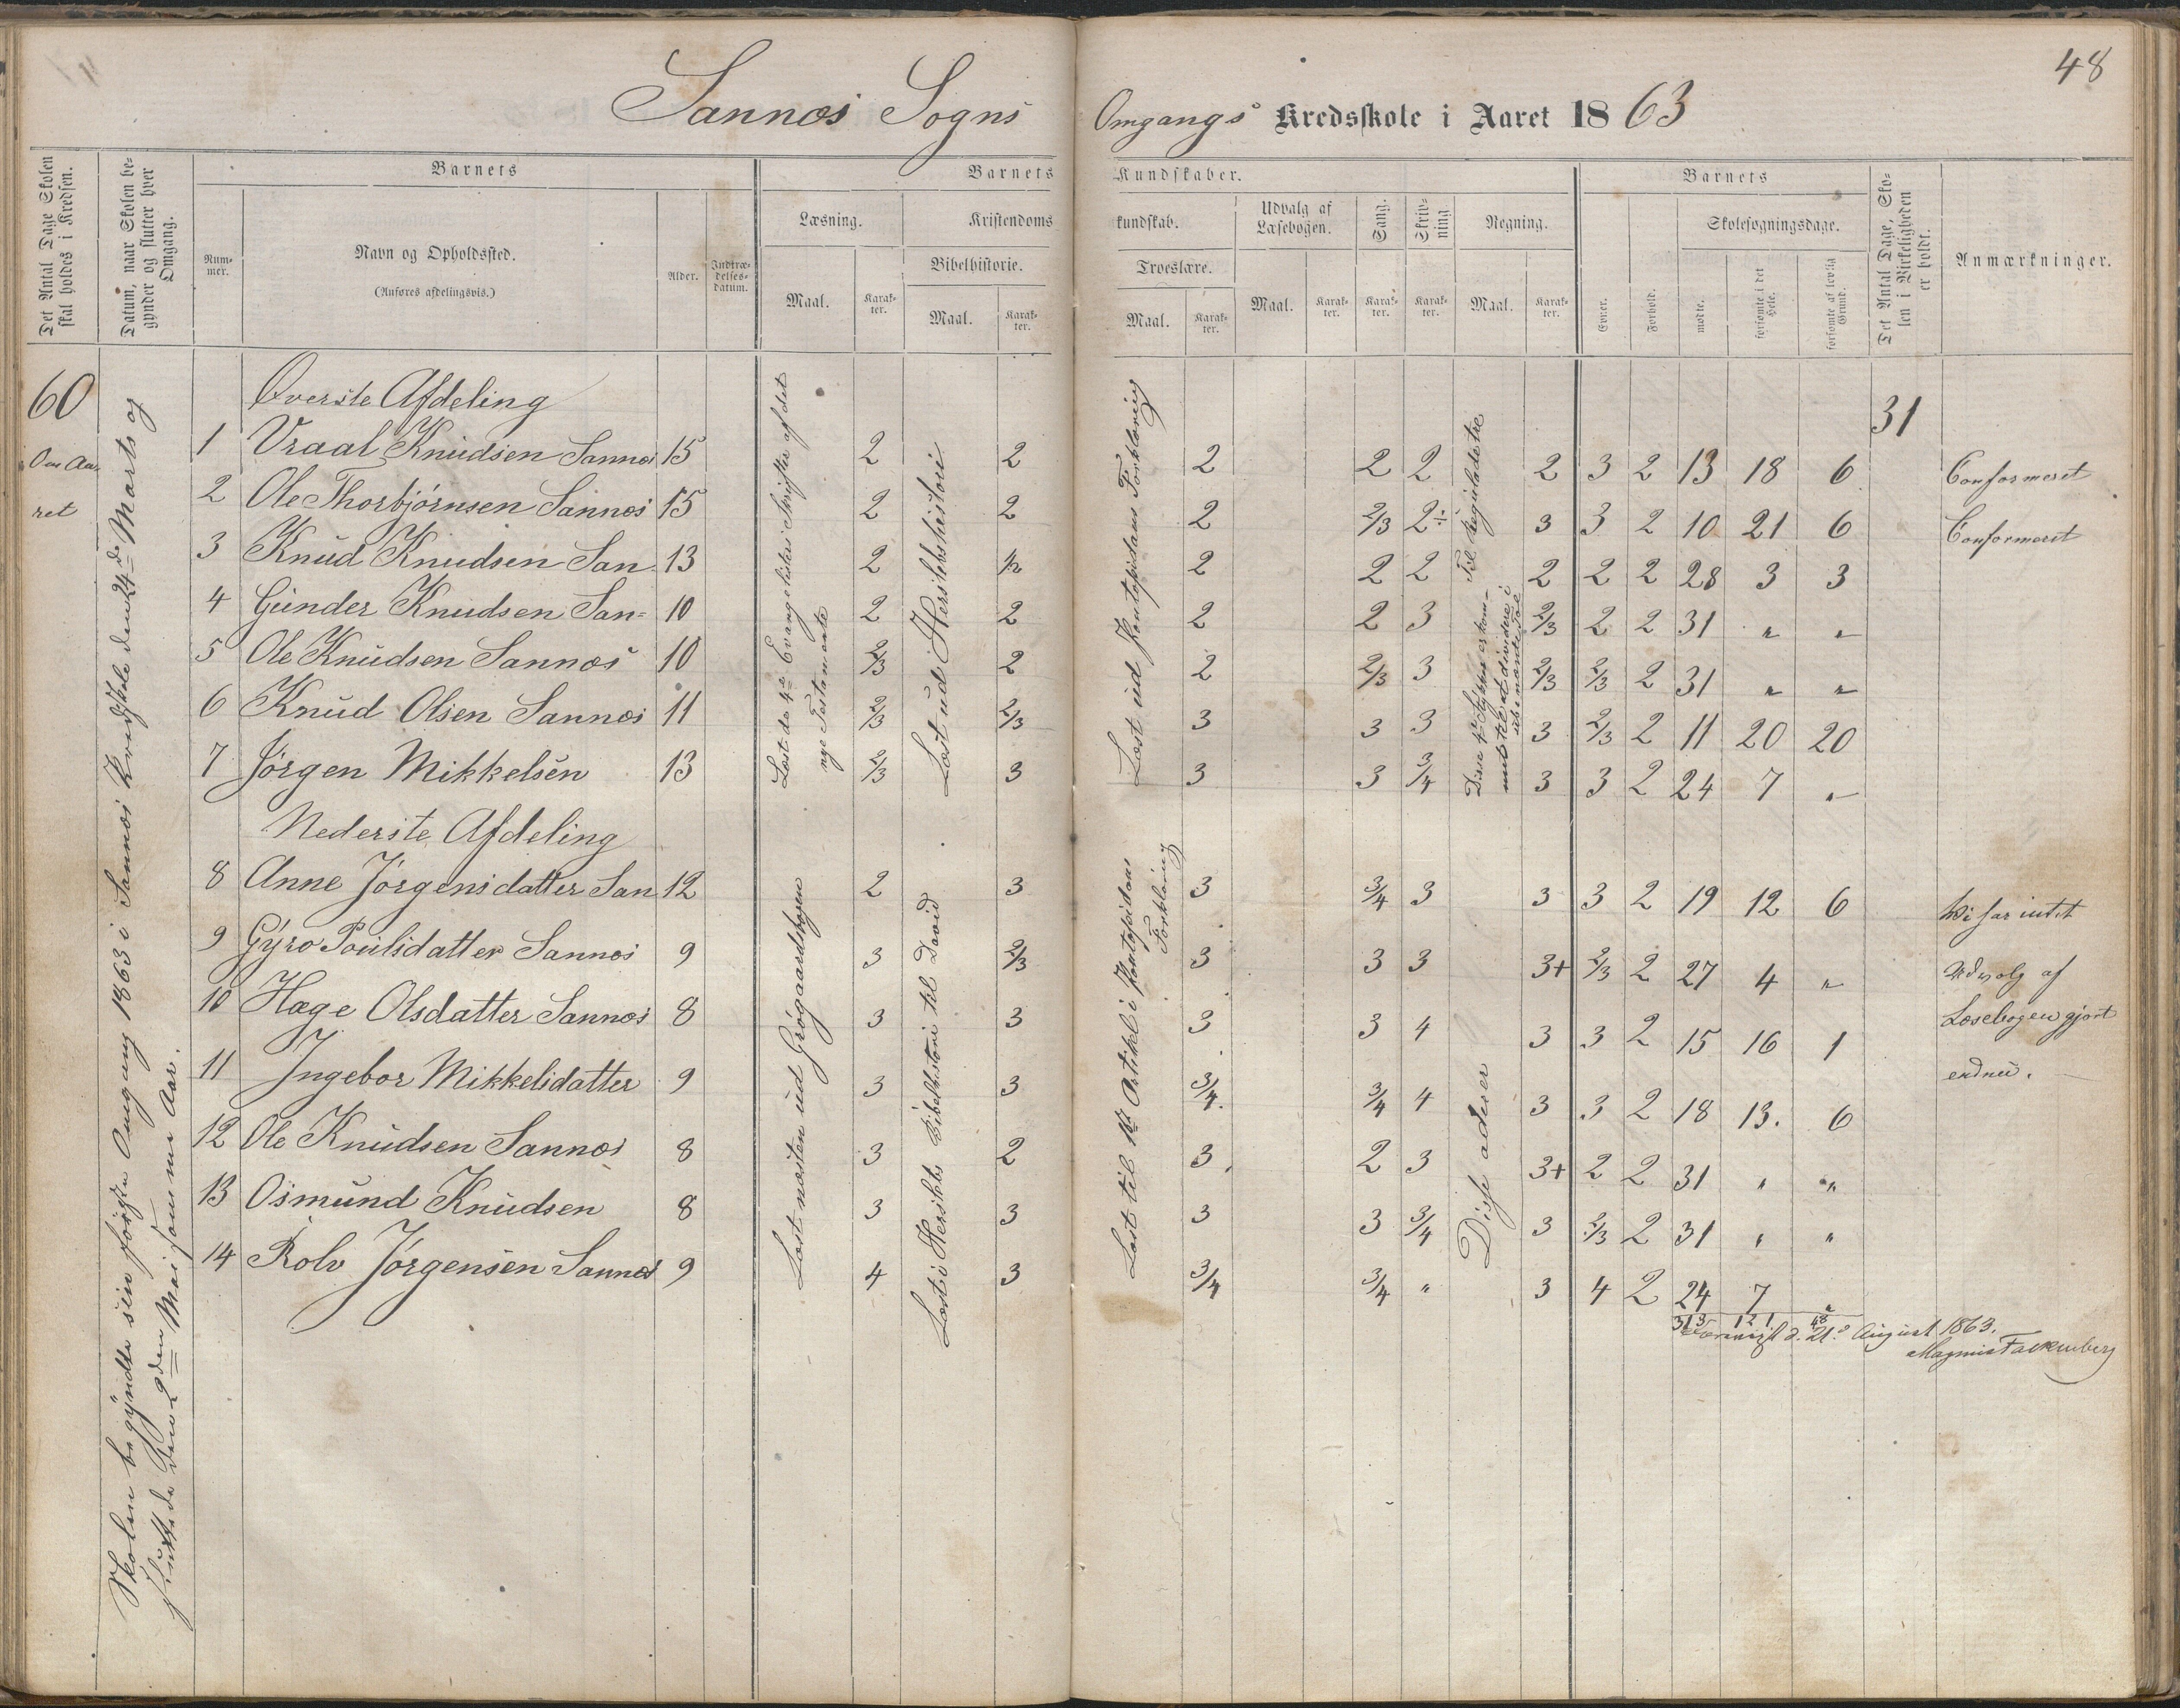 48
Sannes Sogns Omgangs Kredsskole i Aaret 1863
Det Antal Dage Skolen skal holdes i Kredsen.
Datum, naar Skolen begynder og slutter hver Omgang.
Barnets
Nummer.
Navn og Opholdssted.
(Anføres afdelingsvis.)
Alder.
Indtrædelsesdatum.
Barnets Kundskaber.
Læsning.
Maal.
Karakter.
Kristendomskundskab.
Bibelhistorie.
Maal.
Karakter.
Troeslære.
Maal.
Karakter.
Udvalg af Læsebogen.
Maal.
Karakter.
Sang.
Karakter.
Skrivning
Karakter.
Regning.
Maal.
Karakter.
Barnets
Evner.
Forhold.
Skolesøgningsdage.
mødte.
forsømte i det Hele.
forsømte af lovlig Grund.
Det Antal Dage, Skolen i Virkeligheden er holdt.
Anmærkninger.
60
Om Aa-
ret
Skolen begyndte sin første Omgang 1863 i Sannes Kredsskole den 24de Marts og
sluttede den 2den Mai samme Aar.
31
Øverste Afdeling
1 Vraal Knudsen Sannes 15 2 2 2 2 2 2 3 2 13 18 6 Confirmeret
2 Ole Thorbjørnsen Sannes 15 2 2 2 2/3 2÷ 3 3 2 10 21 6 Confirmeret
3 Knud Knudsen San 13 2 2 2 2 2 2 2 28 3 3
4 Gunder Knudsen San= 10 2 2 2 2 3 2/3 2 2 31 " "
5 Ole Knudsen Sannes 10 2/3 2 2 2/3 3 2/3 2/3 2 31 " "
6 Knud Olsen Sannes 11 2/3 2/3 3 3 3 3 2/3 2 11 20 20
7 Jørgen Mikkelsen 13 2/3 3 3 3 3/4 3 3 2 24 7 "
Læst de 4re Evangelisters Skrifter af det
nye Testamente
Læst ud Herslebs historie
Læst ud Pontopidans Forklaring
Til Reguladetre
Disse 4re Stykker er kom-
met til at dividere i
ubenævnte Tal
Nederste Afdeling
8 Anne Jørgensdatter San 12 2 3 3 3/4 3 3 3 2 19 12 6 Vi har intet
9 Gyro Poulsdatter Sannes 9 3 2/3 3 3 3 3+ 2/3 2 27 4 " Udvalg af
10 Hæge Olsdatter Sannes 8 3 3 3 3 4 3 3 2 15 16 1 Læsebogen gjort
11 Ingebor Mikkelsdatter 9 3 3 3/4. 3/4 4 3 3 2 18 13. 6 endnu.
12 Ole Knudsen Sannes 8 3 2 3. 2 3 3+ 2 2 31 " "
13 Osmund Knudsen 8 3 3 3 3 3/4 3 2/3 2 31 " "
14 Rolv Jørgensen Sannes 9 4 3 3/4 3/4 " 3 4 2 24 7 "
Læst næsten ud Grøgaardsbogen
Læst i Herslebs Bibelhistorie til David
Læst til 1ste Artikel i Pontopidans
Forklaring
Disse aderer
313 121 48
d. 21de August 1863.
Magnus Falkenberg